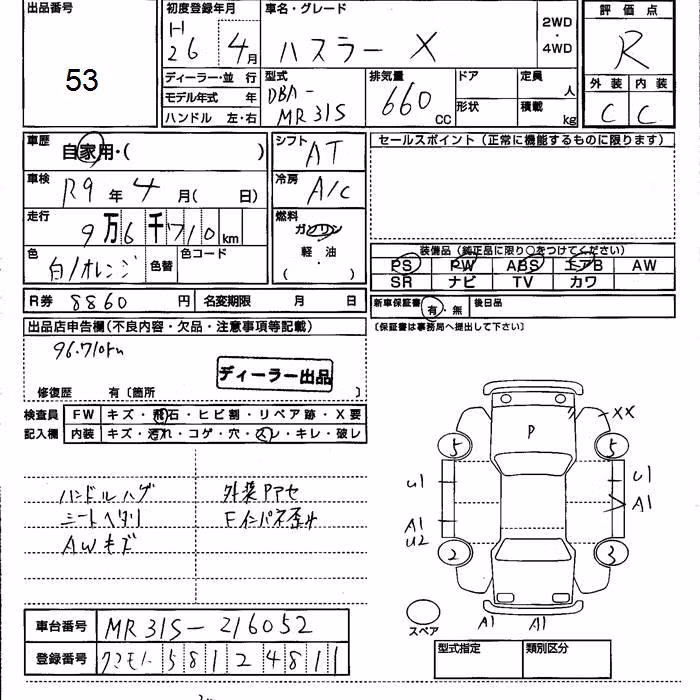 出品番号
53
初度登録年月
H
26 4月
車名・グレード
ハスラー X
2WD
・
4WD
評価点
R
外装 内装
C C
ディーラー・並行
モデル年式 年
ハンドル 左・右
型式
DBA-
MR31S
排気量
660
CC
ドア
形状
定員
人
積載
kg
車歴
自家用・( )
車検
R9年4月( 日)
走行
9万6千710km
色
白/オレンジ
色替
色コード
シフト
AT
冷房
A/C
燃料
ガソリン
軽油
( )
セールスポイント(正常に機能するものに限ります)
装備品(純正品に限り○をつけてください)
PS PW ABS エアB AW
SR ナビ TV カワ
R券 8860円
名変期限 月 日
新車保証書 有・無
後日品
〔保証書は事務局へ提出して下さい〕
出品店申告欄(不良内容・欠品・注意事項等記載)
96.710km
ディーラー出品
修復歴 有〔箇所 〕
検査員
記入欄
FW キズ・飛石・ヒビ割・リペア跡・X要
内装 キズ・汚れ・コゲ・穴・スレ・キレ・破レ
ハンドルハゲ
シートヘタリ
AWキズ
外装Pアセ
Fインパネ歪み
P
XX
5 5
U1 U1
A1
A1
U2
2 3
A1 A1
スペア
車台番号 MR31S-216052
登録番号 クマモト581 2 4811
型式指定
類別区分